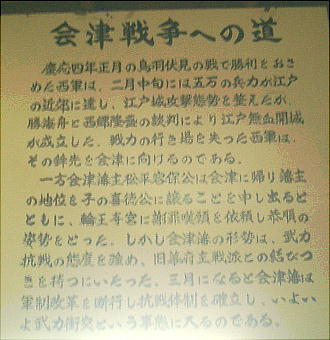 会津戦争への道
慶応四年正月の鳥羽伏見の戦で勝利をおさ
めた西軍は、二月中旬には五万の兵力が江戸
の近郊に達し、江戸城攻撃態勢を整えたが、
勝海舟と西郷隆盛の談判により江戸無血開城
が成立した。戦力の行き場を失った西軍は、
その鉾先を会津に向けるのである。
一方会津藩主松平容保公は会津に帰り藩主
の地位を子の喜徳公に譲ることを申し出ると
ともに、輪王寺宮に謝罪嘆願を依頼し恭順の
姿勢をとった。しかし会津藩の形勢は、武力
抗戦の態度を強め、旧幕府主戦派との結びつ
きを持つにいたった。三月になると会津藩は
軍制改革を断行し抗戦体制を確立し、いよい
よ武力衝突という事態に入るのである。